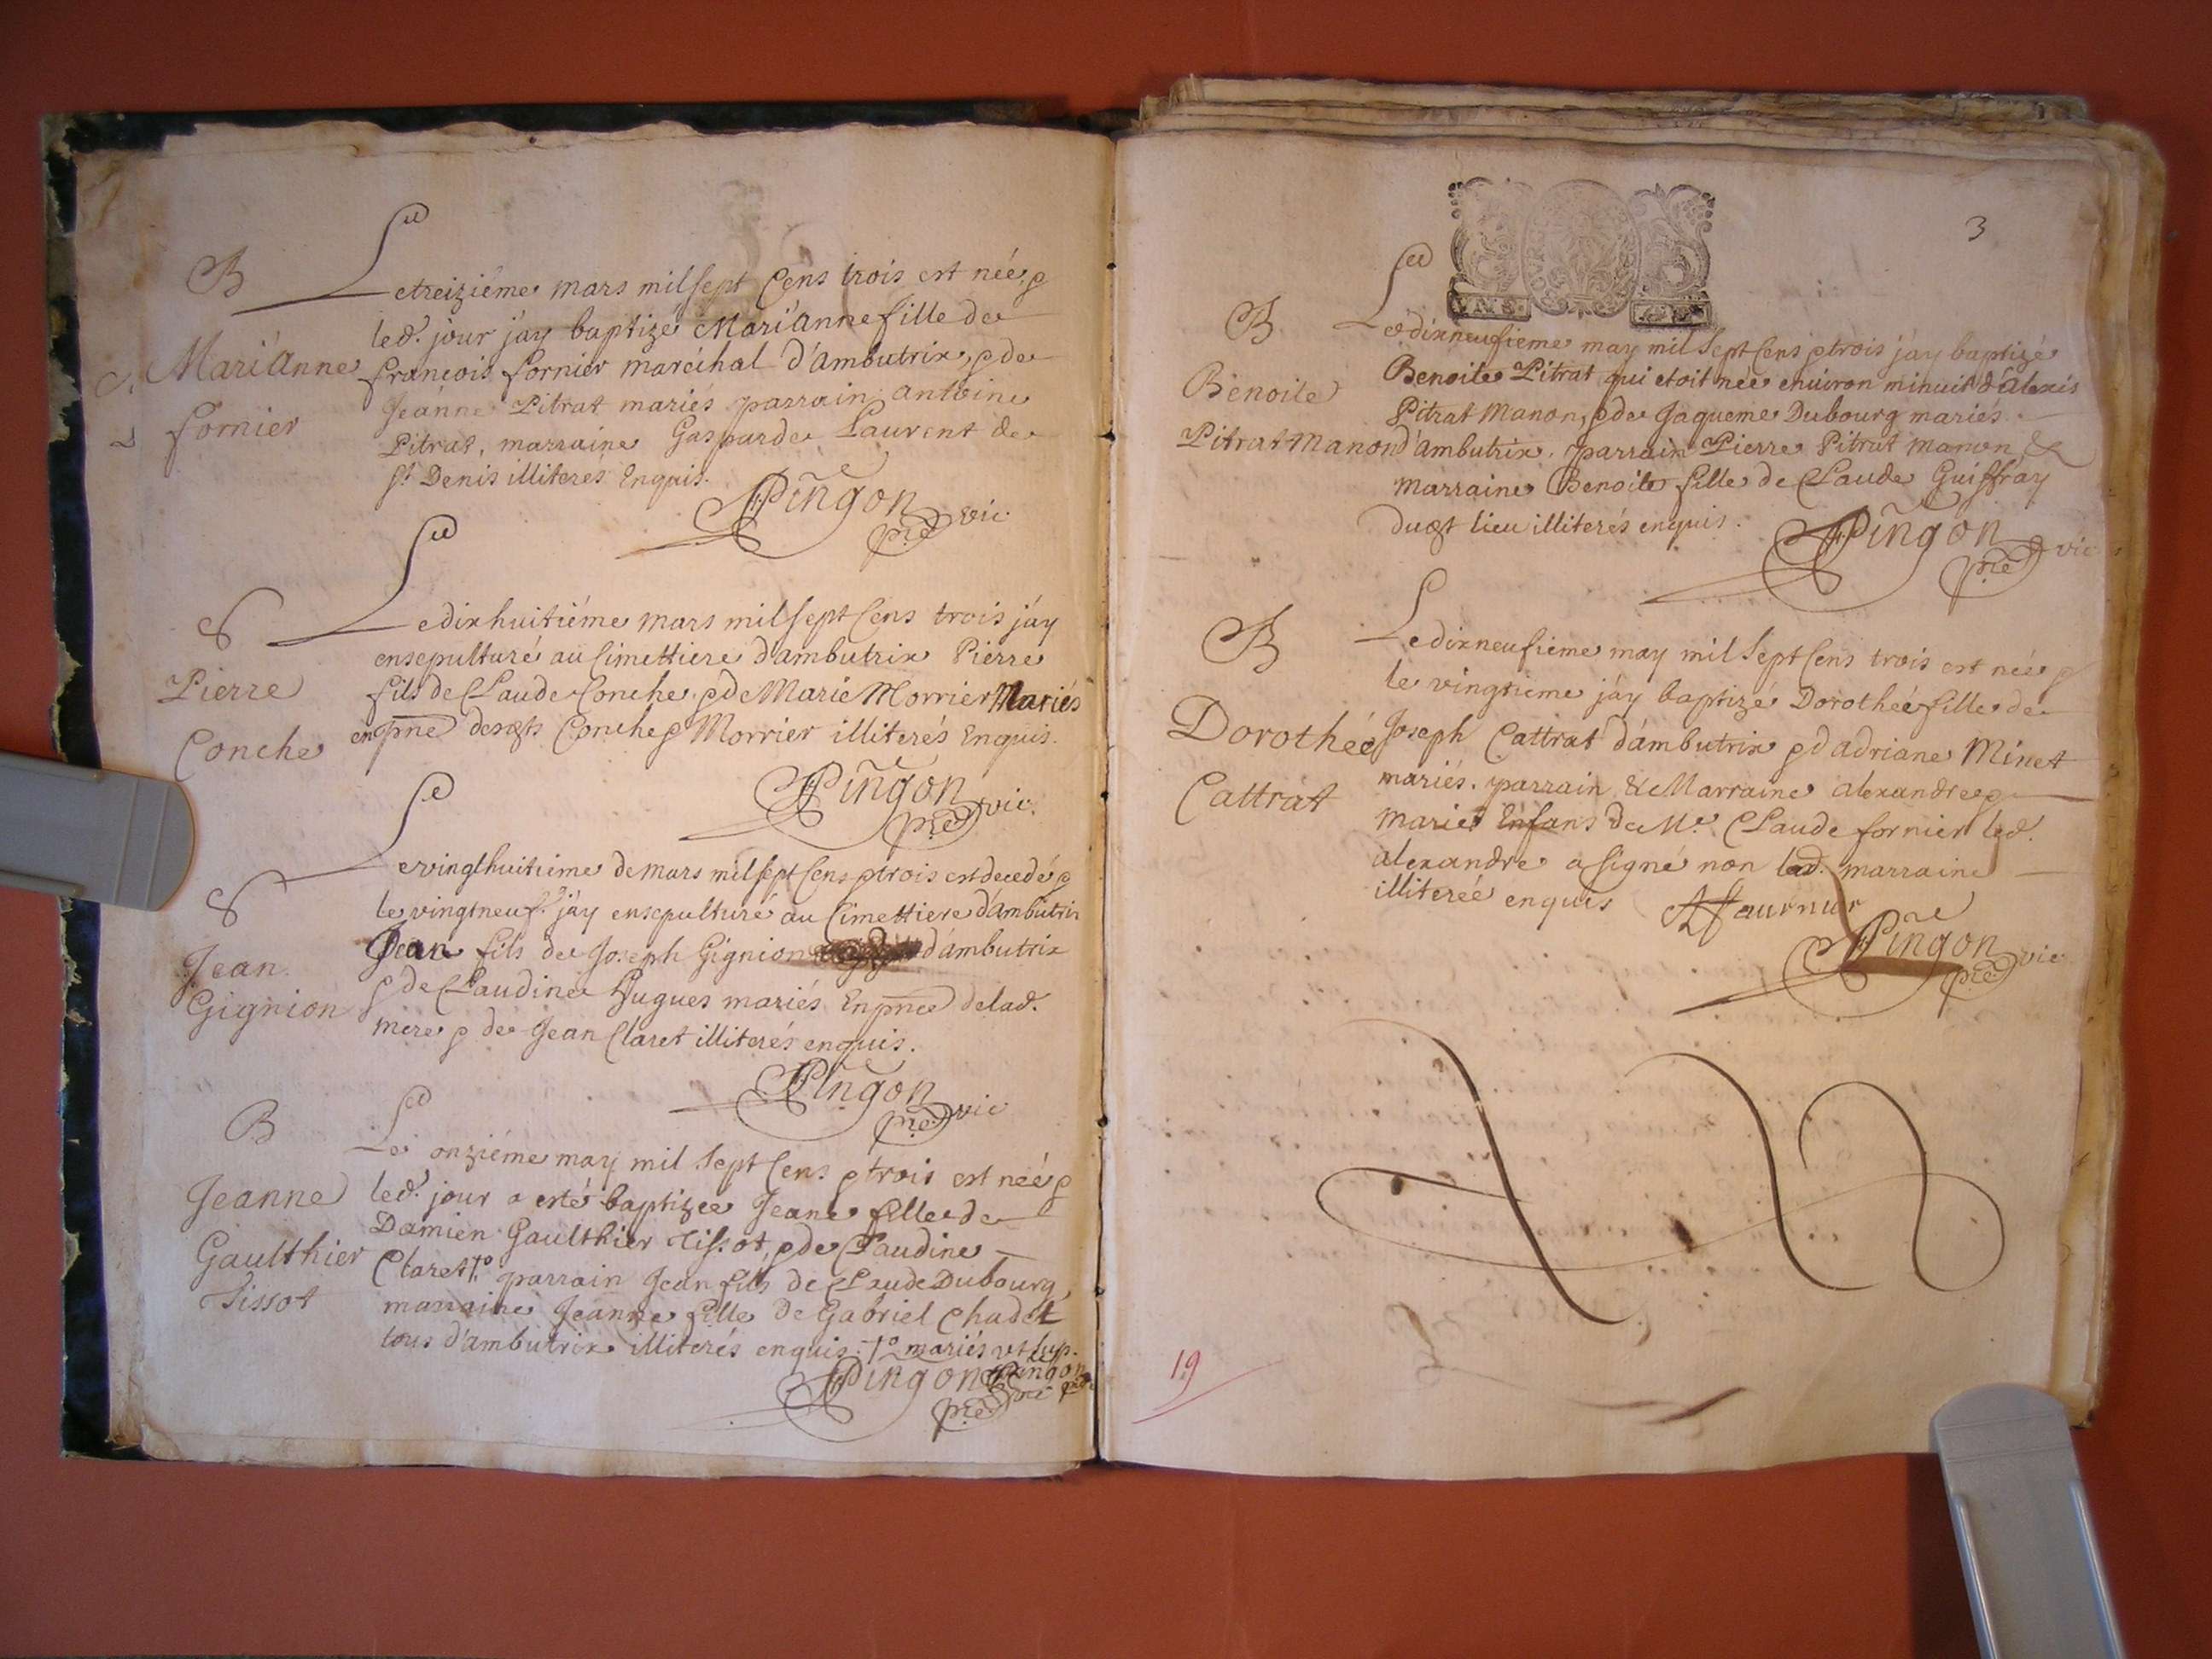 B
Le treiziéme mars mil sept Cens trois est née, &
led. jour j'ay baptizé Mari'anne fille de
Mari'Anne
francois fornier maréchal d'ambutrix, & de
fornier
Jeanne Pitrat mariés parrain antoine
Pitrat, marraine Gasparde Laurent de
st Denis illiteres Enquis.
Pingon pre vic
S
Le dixhuitiéme mars mil sept Cens trois j'ay
ensepulturé au Cimettiere d'ambutrix Pierre
Pierre
fils de Claude Conche & de Marie Morrier Mariés
Conche
en pne desdts Conche & Morrier illiterés Enquis.
Pingon pre vic.
S
Le vingthuitieme de mars mil sept Cens & trois est decedé &
le vingtneuf. j'ay ensepulturé au Cimettiere d'ambutrix
Jean
Jean fils de Joseph Gignion d'ambutrix
Gignion
& de Claudine Hugues mariés En pnce de lad.
mere & de Jean Claret illiterés enquis.
Pingon pre vic
B
Le onziéme may mil sept Cens & trois est née &
Jeanne
led. jour a esté baptizée Jeane fille de
Gaulthier
Damien Gaulthier Tissot, & de Claudine
Tissot
Claret †° parrain Jean fils de Claude Dubourg
marraine Jeanne fille de Gabriel Chadel
tous d'ambutrix illiterés enquis. †° mariés ut sup.
Pingon pre Pingon pre
3
B
Le dixneufieme may mil sept Cens & trois j'ay baptizé
Benoite
Benoite Pitrat qui etoit née environ minuit d'alexis
Pitrat Manon, & de Jaqueme Dubourg mariés
Pitrat Manon
d'ambutrix. parrain Pierre Pitrat manon, &
marraine Benoite fille de Claude Guiffray
dudt lieu illiterés enquis.
Pingon pre vic
B
Le dixneufieme may mil sept Cens trois est née &
le vingtieme j'ay baptizé Dorothée fille de
Dorothée
Joseph Cattrat d'ambutrix & d'adriane Minet
Cattrat
mariés. parrain & Marraine alexandre &
marie Enfans de Me. Claude fornier led.
alexandre a signé non lad. marraine
illiterée enquis
Pingon pre vic
19